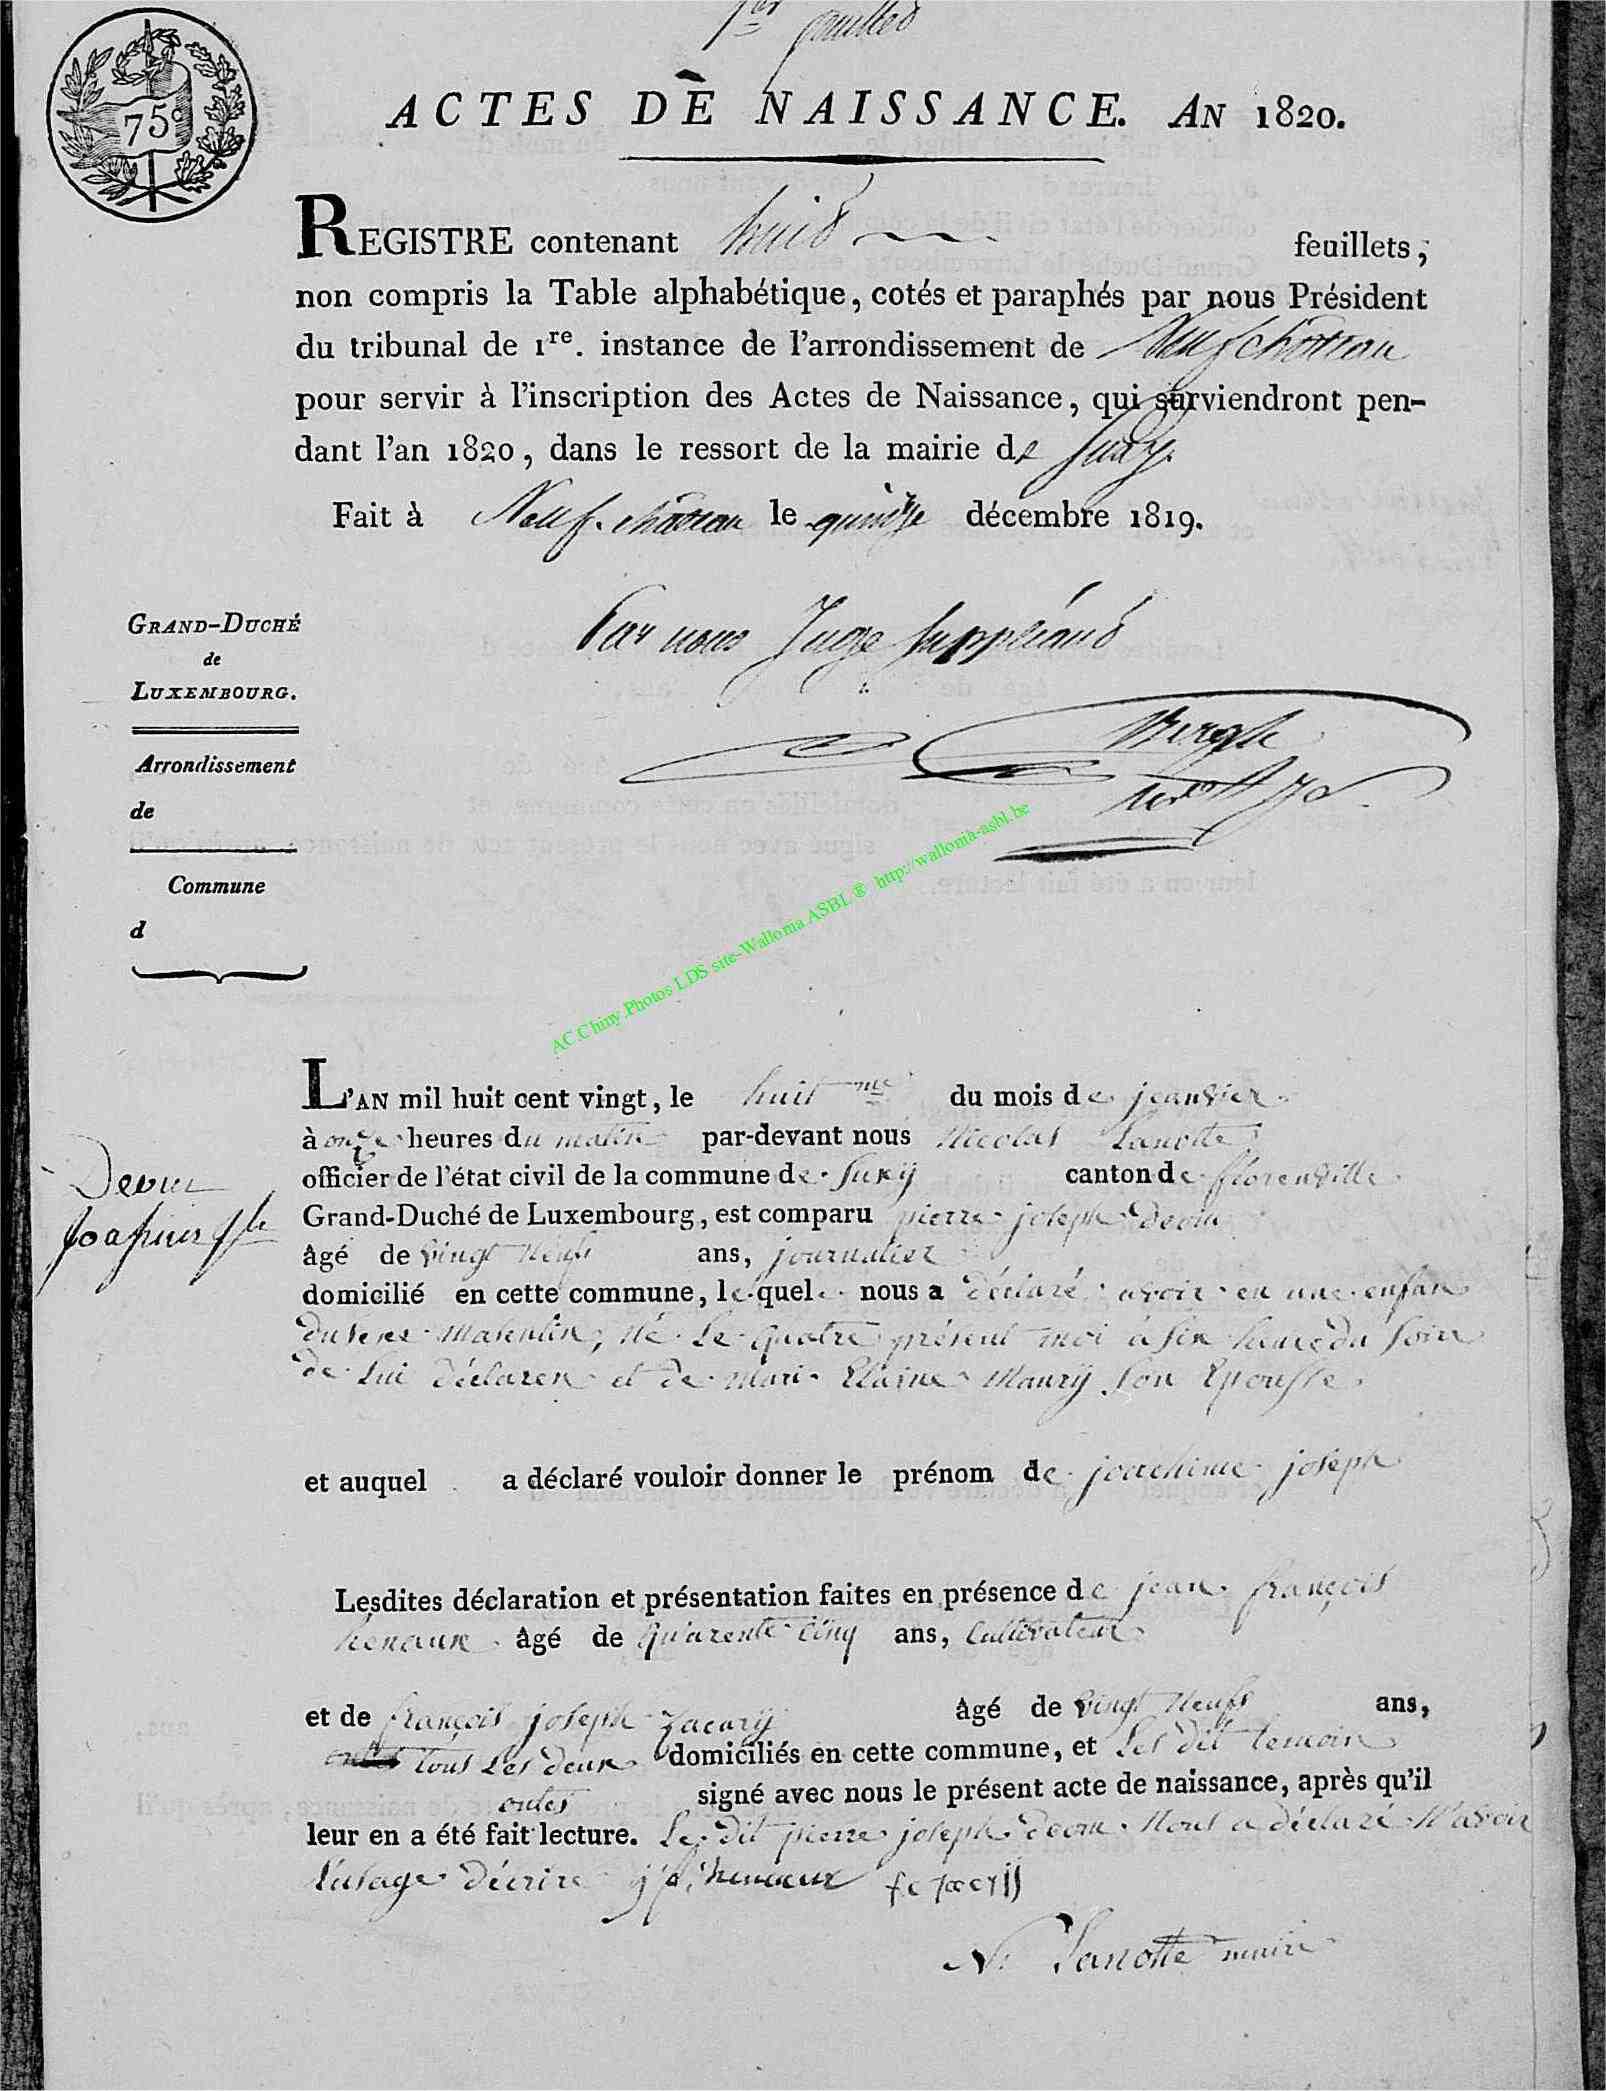 1er feuillet
75c
ACTES DE NAISSANCE. AN 1820.
REGISTRE contenant huit feuillets,
non compris la Table alphabétique, cotés et paraphés par nous Président
du tribunal de 1re. instance de l'arrondissement de Neufchateau
pour servir à l'inscription des Actes de Naissance, qui surviendront pen-
dant l'an 1820, dans le ressort de la mairie de Suxy.
Fait à Neuf-chateau le quinze décembre 1819.
Par nous Juge Suppléant
GRAND-DUCHÉ
de
LUXEMBOURG.
Arrondissement
de
Commune
d
AC.Chiny.Photos LDS site-Wallonia ASBL ® http://wallonia-asbl.be
L'AN mil huit cent vingt, le huit me du mois de jeanvier
à onze heures du matin par-devant nous Nicolas Lanotte
officier de l'état civil de la commune de Suxy canton de florenville
Grand-Duché de Luxembourg, est comparu pierre joseph deom
âgé de vingt neufs ans, journalier
domicilié en cette commune, lequel nous a déclaré avoir eu une enfan
du sexe masculin, né le quatre présent moi à six heure du soire
de lui déclaren et de Mari Elaine Maury son Epousse
Deom
joseph
et auquel a déclaré vouloir donner le prénom de joachime joseph
Lesdites déclaration et présentation faites en présence de jean françois
henaux âgé de quarente cinq ans, Cultivateur
et de françois joseph Jacury âgé de vingt neufs ans,
tous les deux domiciliés en cette commune, et les dit temoin
ontes signé avec nous le présent acte de naissance, après qu'il
leur en a été fait lecture. Le dit pierre joseph deom nous a déclaré n'avoir
l'usage d'écrire j f henaux
N. Lanotte maire